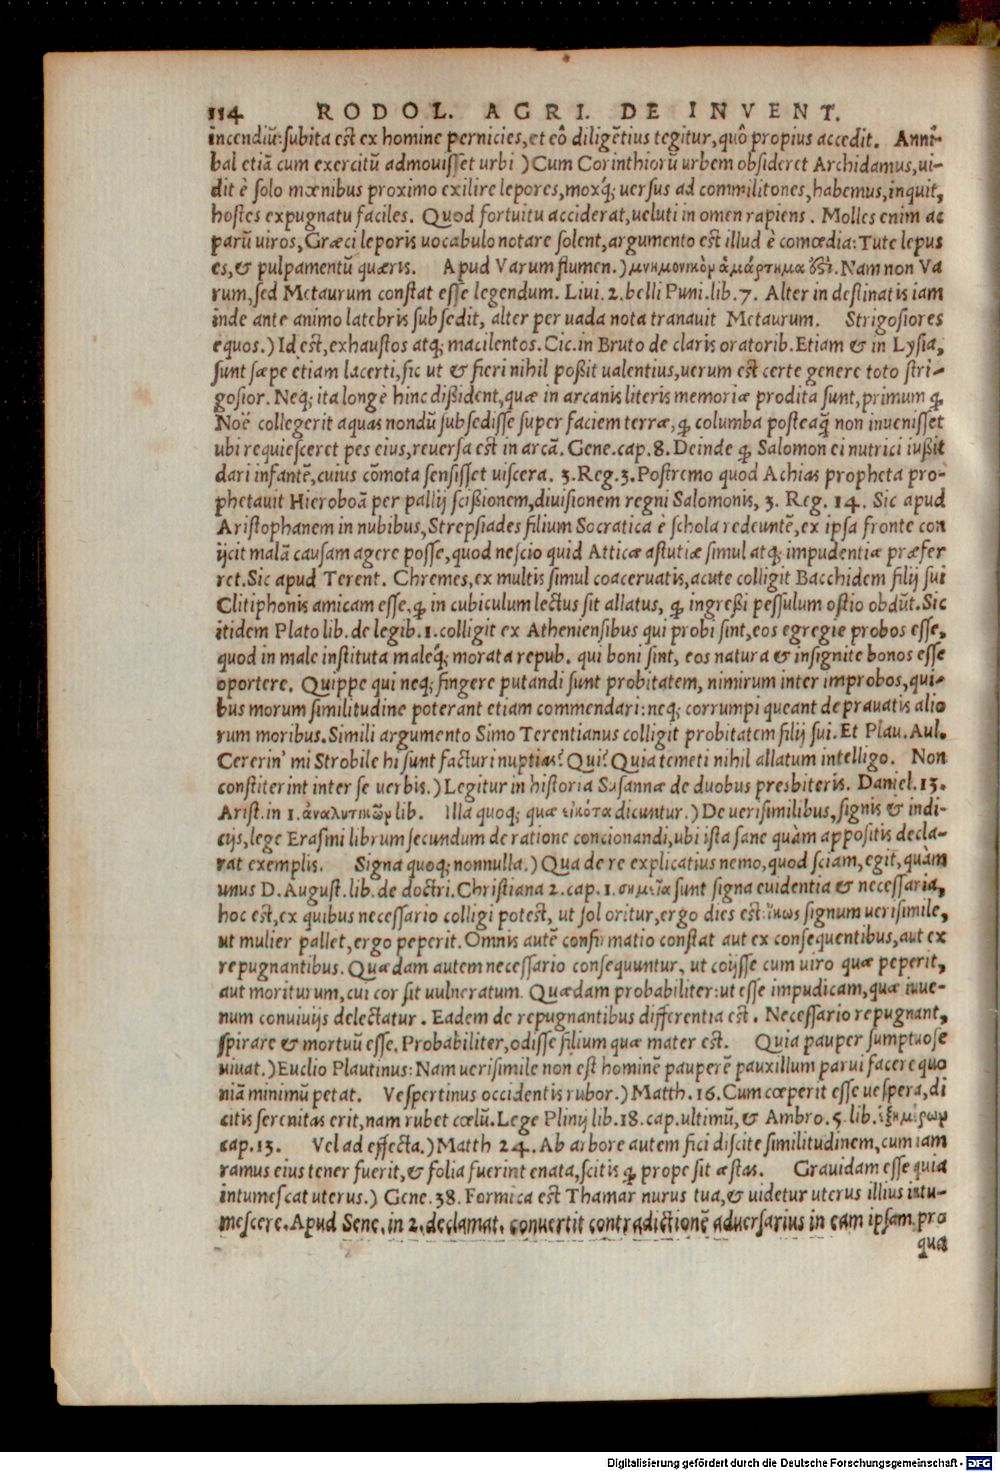 114 RODOL. AGRI. DE INVENT.
incendiũ: subita est ex homine pernicies, et eô diligẽtius tegitur, quô propius accedit. Anni-
bal etiã cum exercitũ admouisset urbi ) Cum Corinthiorũ urbem obsideret Archidamus, ui-
dit è solo mœnibus proximo exilire lepores, moxq́; uersus ad commilitones, habemus, inquit,
hostes expugnatu faciles. Quod fortuitu acciderat, ueluti in omen rapiens. Molles enim ac
parũ uiros, Græci leporis uocabulo notare solent, argumento est illud è comœdia: Tute lepus
es, & pulpamentũ quæris. Apud Varum flumen.) μνημονικὸν ἁμάρτημα ὅτι. Nam non Va
rum, sed Metaurum constat esse legendum. Liui. 2. belli Puni. lib. 7. Alter in destinatis iam
inde ante animo latebris subsedit, alter per uada nota tranauit Metaurum. Strigosiores
equos.) Id est, exhaustos atq; macilentos. Cic. in Bruto de claris oratorib. Etiam & in Lysia,
sunt sæpe etiam lacerti, sic ut & fieri nihil poßit ualentius, uerum est certe genere toto stri-
gosior. Neq; ita longè hinc dißident, quæ in arcanis literis memoriæ prodita sunt, primum ꝙ
Noë collegerit aquas nondũ subsedisse super faciem terræ, ꝙ columba posteaq̃ non inuenisset
ubi requiesceret pes eius, reuersa est in arcã. Gene. cap. 8. Deinde ꝙ Salomon ei nutrici iußit
dari infantẽ, cuius cõmota sensisset uiscera. 3. Reg. 3. Postremo quod Achias propheta pro-
phetauit Hieroboã per pallij scißionem, diuisionem regni Salomonis, 3. Reg. 14. Sic apud
Aristophanem in nubibus, Strepsiades filium Socratica è schola redeuntẽ, ex ipsa fronte con
ijcit malã causam agere posse, quod nescio quid Atticæ astutiæ simul atq; impudentiæ præfer
ret. Sic apud Terent. Chremes, ex multis simul coaceruatis, acute colligit Bacchidem filij sui
Clitiphonis amicam esse, ꝙ in cubiculum lectus sit allatus, ꝙ ingreßi pessulum ostio obdũt. Sic
itidem Plato lib. de legib. 1. colligit ex Atheniensibus qui probi sint, eos egregie probos esse,
quod in male instituta maleq́; morata repub. qui boni sint, eos natura & insignite bonos esse
oportere. Quippe qui neq; fingere putandi sunt probitatem, nimirum inter improbos, qui-
bus morum similitudine poterant etiam commendari: neq; corrumpi queant deprauatis alio
rum moribus. Simili argumento Simo Terentianus colligit probitatem filij sui. Et Plau. Aul.
Cererin' mi Strobile hi sunt facturi nuptias? Qui? Quia temeti nihil allatum intelligo. Non
constiterint inter se uerbis.) Legitur in historia Susannæ de duobus presbiteris. Daniel. 13.
Arist. in 1. ἀναλυτικῶν lib. Illa quoq; quæ εἰκότα dicuntur.) De uerisimilibus, signis & indi-
cijs, lege Erasmi librum secundum de ratione concionandi, ubi ista sane quàm appositis decla-
rat exemplis. Signa quoq; nonnulla.) Qua de re explicatius nemo, quod sciam, egit, quàm
unus D. August. lib. de doctri. Christiana 2. cap. 1. σημεῖα sunt signa euidentia & necessaria,
hoc est, ex quibus necessario colligi potest, ut sol oritur, ergo dies est: signum uerisimile,
ut mulier pallet, ergo peperit. Omnis autẽ confirmatio constat aut ex consequentibus, aut ex
repugnantibus. Quædam autem necessario consequuntur, ut coijsse cum uiro quæ peperit,
aut moriturum, cui cor sit uulneratum. Quædam probabiliter: ut esse impudicam, quæ iuue-
num conuiuijs delectatur. Eadem de repugnantibus differentia est. Necessario repugnant,
spirare & mortuũ esse. Probabiliter, odisse filium quæ mater est. Quia pauper sumptuose
uiuat.) Euclio Plautinus: Nam uerisimile non est hominẽ pauperẽ pauxillum parui facere quo
niã minimũ petat. Vespertinus occidentis rubor.) Matth. 16. Cum cœperit esse uespera, di
citis serenitas erit, nam rubet cœlũ. Lege Plinij lib. 18. cap. ultimũ, & Ambro. 5. lib. ἑξημέρων
cap. 13. Vel ad effecta.) Matth 24. Ab arbore autem fici discite similitudinem, cum iam
ramus eius tener fuerit, & folia fuerint enata, scitis ꝙ prope sit æstas. Grauidam esse quia
intumescat uterus.) Gene. 38. Formica est Thamar nurus tua, & uidetur uterus illius intu-
mescere. Apud Senc. in 2. declamat. conuertit contradictionẽ aduersarius in eam ipsam pro
qua
Digitalisierung gefördert durch die Deutsche Forschungsgemeinschaft - DFG